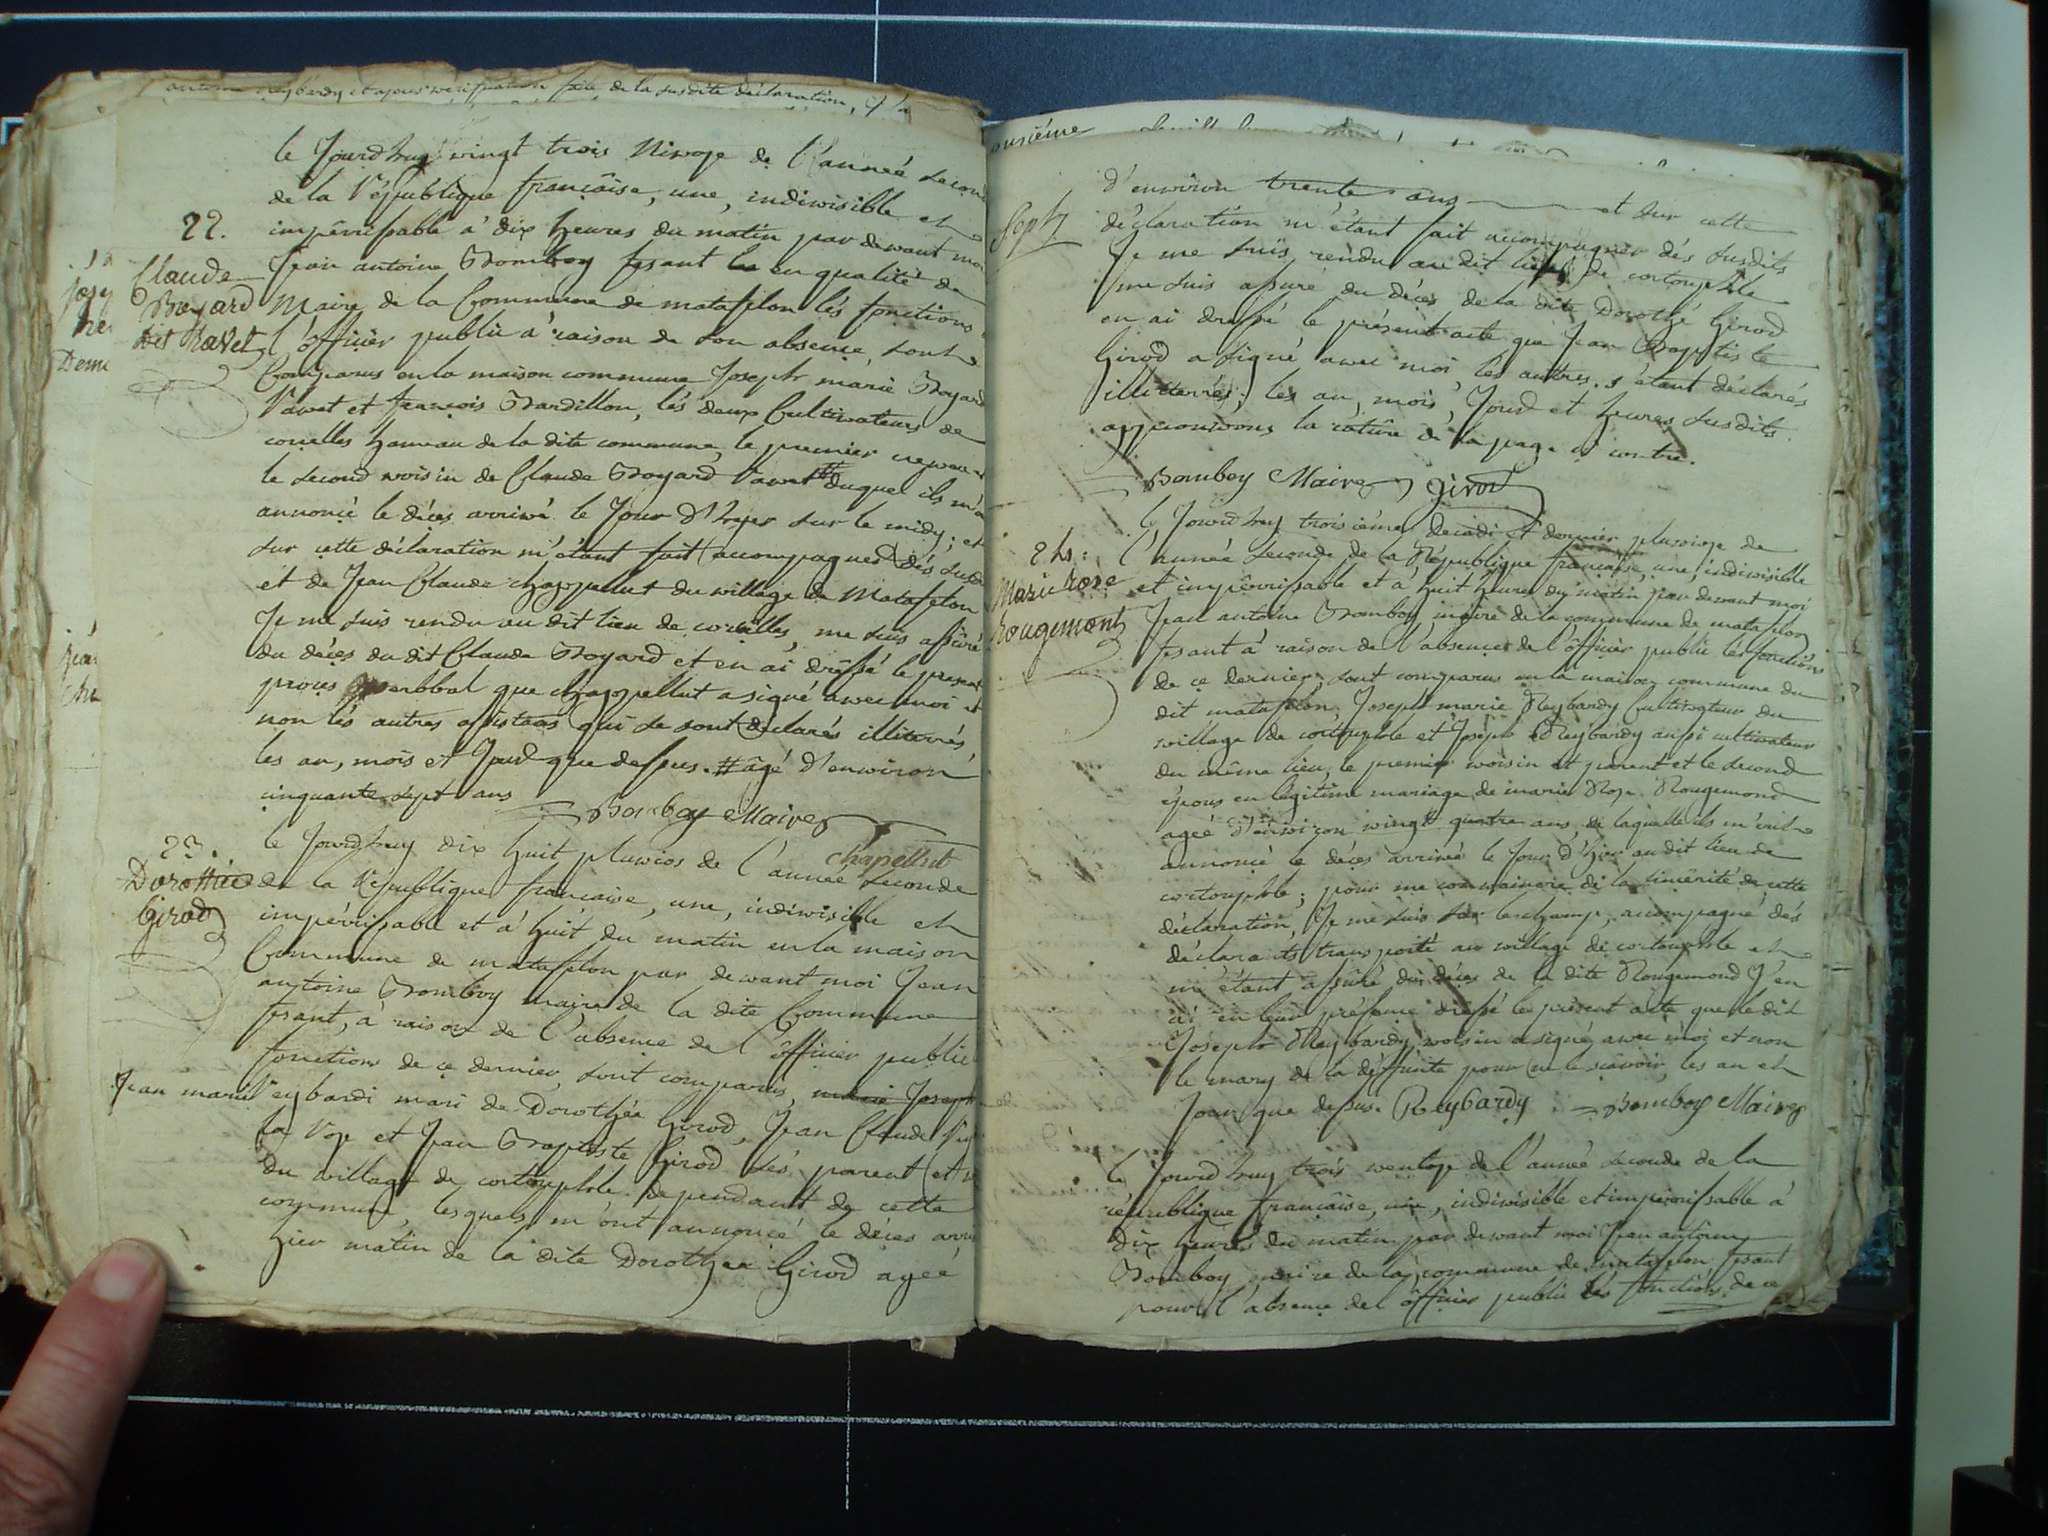 de la susdite déclaration,
le Jourdhuy vingt trois Nivose de l'année second
de la République françâise, une, indivisible et
22.
impérissable à dix heures du matin par devant moi
Claude Boyard dit Ravet
Jean antoine Bomboy fesant en qualité de
Maire de la Commune de matafelon lés fonctions
l'officier public à raison de son absence, sont
Comparus en la maison commune Joseph marie Boyard
Ravet et françois Bardillon, lés deux Cultivateurs de
corcelles hameau de la dite commune, le premier neveu
le second voisin de Claude Boyard Ravet # duquel ils m'o
annoncé le décés arrivé le Jour d'hyer sur le midy; et
sur cette déclaration m'étant fait accompagner dés susd
et de Jean Claude chappellut du village de Matafelon
Je me suis rendu au dit lieu de corcelles, me suis assûré
du décés du dit Claude Boyard et en ai dréssé le present
procés verbbal que chappellut a signé avec moi et
non lés autres assistans qui se sont déclarés illiterrés,
les an, mois et Jourd que dessus. # âgé d'environ
cinquante sépt ans
Bomboy Maire
chapellut
23.
Dorothée Girod
le Jourdhuy dix huit pluvios de l'année seconde
de la République francaise, une, indivisible et
impérissable et à huit du matin en la maison
Commune de matafelon par devant moi Jean
antoine Bomboy maire de la dite Commune
fesant, à raison de l'absence de l'officier public
fonctions de ce dernier, sont comparus, Joseph
Jean marie Reybardi mari de Dorothée Girod, Jean Claude
la Roze et Jean Baptiste Girod sés parent et
du village de cortouphle dépendant de cette
commune lesquels m'ont annoncé le décés arri
hier matin de la dite Dorothée Girod ageé
d'environ trente ans et sur cette
déclaration m'étant fait accompagner dés susdits
Je me suis rendu au dit lieu de cortouphle
me suis assuré du décés de la dite Dorothé Girod
en ai dréssé le présent acte que Jean Baptiste
Girod a signé avec moi lés autres s'étant déclarés
illitterrés; les an, mois, Jourd et heures susdits.
approuvons la rature de la page ci contre.
Bomboy Maire Girod
24:
Marie Roze Rougemont
le Jourdhuy troisiéme decadi et dernier pluviose de
l'année seconde de la République française, une, indivisible
et impérissable et à huit heures du matin par devant moi
Jean antoine Bomboy maire de la commune de matafelon
fesant à raison de l'absence de l'officier public les fonctions
de ce dernier, sont comparus en la maison commune du
dit matafelon Joseph marie Reybardy Cultivateur du
village de cortouphle et Joseph Reybardy aussi cultivateur
du même lieu, le premier voisin et parent et le second
épous en légitime mariage de marie Roze Rougemond
ageé d'environ vingt quatre ans, de laquelle ils m'ont
annoncé le décés arrivé le Jour d'hier au dit lieu de
cortouphle; pour me convaincre de la sincérité de cette
déclaration, Je me suis sur le champ, acompagné dés
déclarants transporté au village de cortouphle et
m'étant assûré du décés de la dite Rougemond J'en
ai en leur présence dressé le présent acte que le dit
Joseph Reybardy voisin a signé avec moi et non
le mary de la déffunte pour ne le sçavoir, les an et
Jour que dessus. Reybardy Bomboy Maire
le Jourdhuy trois ventose de l'année seconde de la
république françâise, une, indivisible et impérissable à
dix heures du matin par devant moi Jean antoine
Bomboy maire de la commune de matafelon fesant
pour l'absence de l'officier public lés fonctions de ce